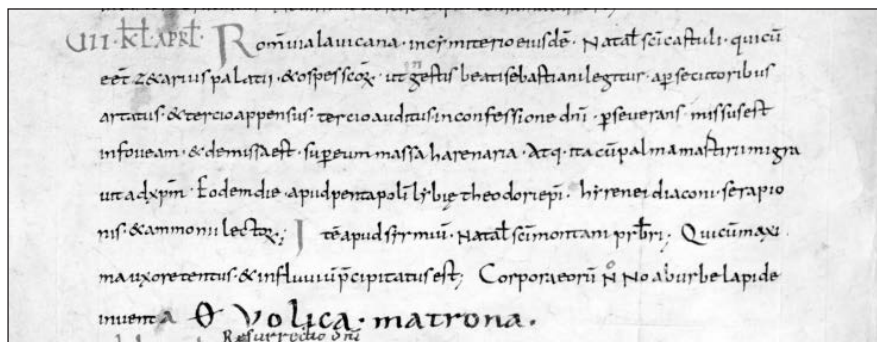 UII · KL APRL · Rom via lauicana · in cymiterio eiusdē · Natał scī castuli · qui cū
eēt zetarius palatii · & ospes scōꝝ · ut in gestis beati sebastiani legitur · a p̱secutoribus
artatus · & tercio appensus · tercio auditus · in confessione dnī · p̱seuerans · missus est
in foueam · & demissa est · sup eum massa harenaria · Atq· ita cū palma martirii migra
uit ad xpm̄ · Eodem die · apud pentapolī lybię theodori epī · hyrenei diaconi · serapio
nis · & ammonii lectoꝝ ·; Itē apud syrmiū · Natał scī montani prb̄ri ; Qui cū maxi
ma uxore tentus · & in fluuiū p̄cipitatus est ; Corpora eorū N̊ No ab urbe lapide
inuenta θ Volica · matrona .
Resurrectio dnī